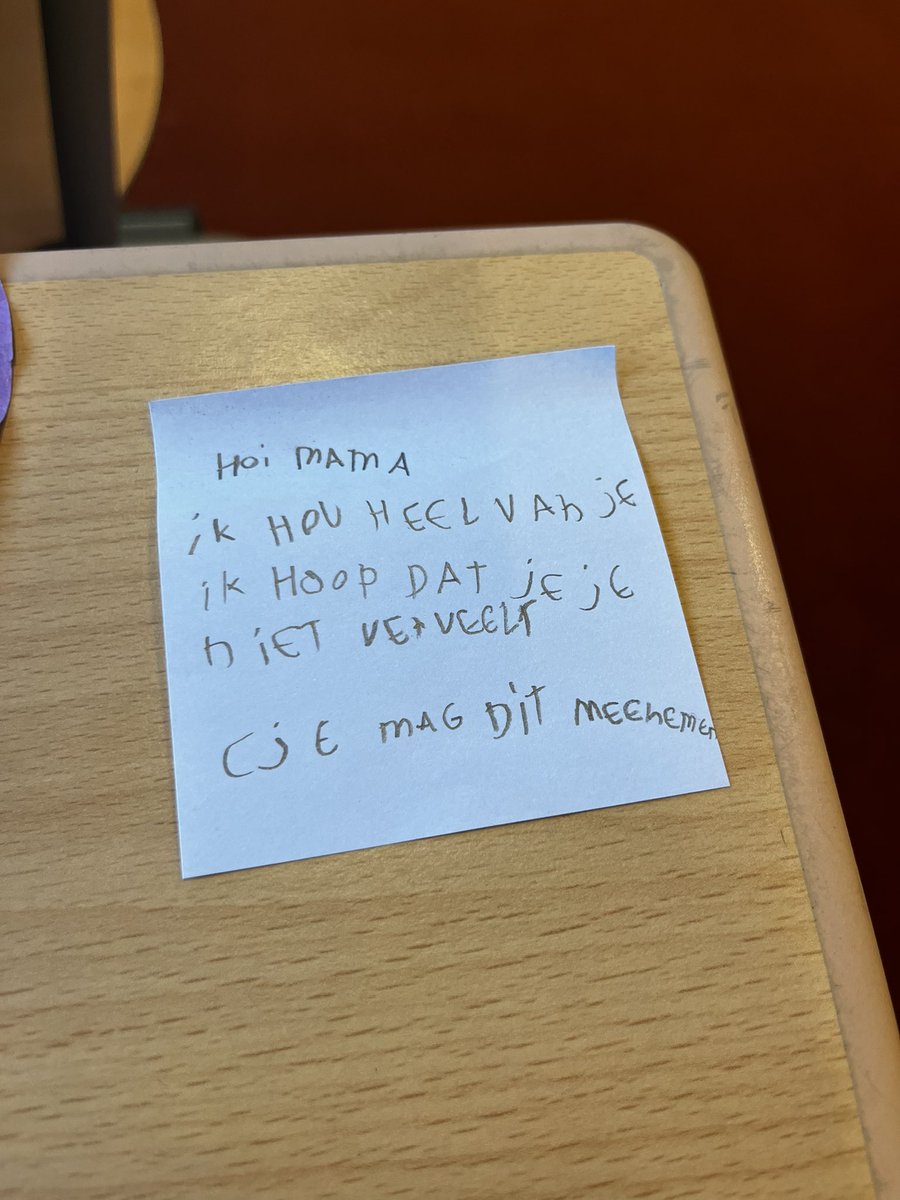 Hoi MAMA
ik HOU HEEL VAn jE
ik HOOP DAT jE jE
niET VErVEELT
(jE MAG DIT MEEnEMEn